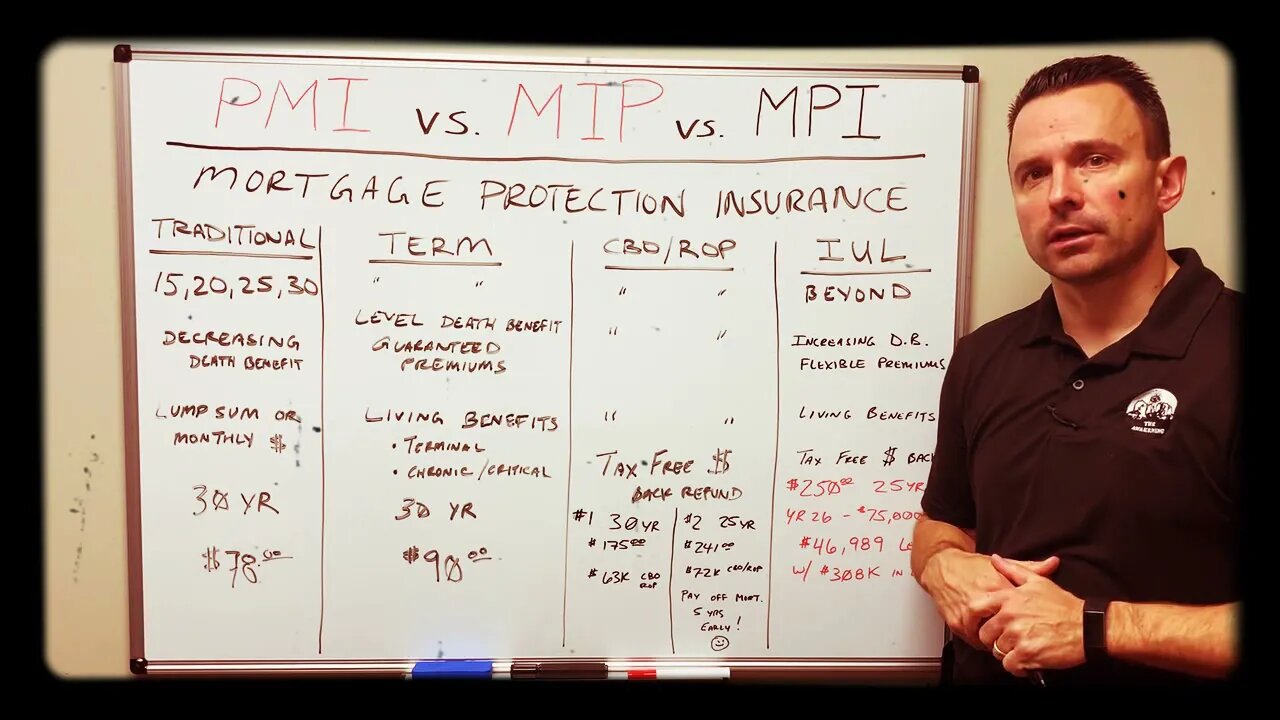 PMI vs. MIP vs. MPI
MORTGAGE PROTECTION INSURANCE
TRADITIONAL
15, 20, 25, 30
DECREASING
DEATH BENEFIT
LUMP SUM OR
MONTHLY $
30 YR
$78.00
TERM
" "
LEVEL DEATH BENEFIT
GUARANTEED
PREMIUMS
LIVING BENEFITS
• TERMINAL
• CHRONIC/CRITICAL
30 YR
$90.00
CBO/ROP
" "
" "
" "
TAX FREE $
BACK REFUND
#1 30YR
$175.00
$63K CBO
ROP
#2 25YR
$241.00
$72K CBO/ROP
PAY OFF MORT.
5 YRS
EARLY!
IUL
BEYOND
INCREASING D.B.
FLEXIBLE PREMIUMS
LIVING BENEFITS
TAX FREE $ BACK
$250.00 25 YR
YR 26 - $75,000
$46,989
W/ $308K IN
THE
AWAKENING